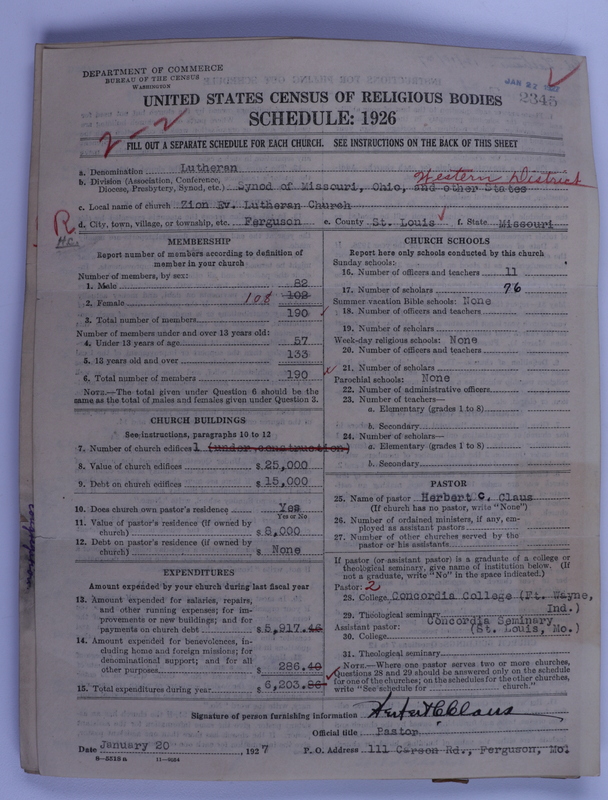 DEPARTMENT OF COMMERCE
BUREAU OF THE CENSUS
WASHINGTON
JAN 22
2345
UNITED STATES CENSUS OF RELIGIOUS BODIES
SCHEDULE: 1926
2-2
FILL OUT A SEPARATE SCHEDULE FOR EACH CHURCH. SEE INSTRUCTIONS ON THE BACK OF THIS SHEET
a. Denomination Lutheran
Western District
b. Division (Association, Conference, Diocese, Presbytery, Synod, etc.) Synod of Missouri, Ohio, and other States
c. Local name of church Zion Ev. Lutheran Church
R
d. City, town, village, or township, etc. Ferguson e. County St. Louis f. State Missouri
MEMBERSHIP
Report number of members according to definition of
member in your church
Number of members, by sex:
1. Male 82
2. Female 108 102
3. Total number of members 190
Number of members under and over 13 years old:
4. Under 13 years of age 57
5. 13 years old and over 133
6. Total number of members 190
NOTE.—The total given under Question 6 should be the
same as the total of males and females given under Question 3.
CHURCH BUILDINGS
See instructions, paragraphs 10 to 12
7. Number of church edifices 1 (under construction)
8. Value of church edifices $ 25,000
9. Debt on church edifices $ 15,000
10. Does church own pastor's residence? Yes
Yes or No
11. Value of pastor's residence (if owned by
church) $ 8,000
12. Debt on pastor's residence (if owned by
church) $ None
EXPENDITURES
Amount expended by your church during last fiscal year
13. Amount expended for salaries, repairs,
and other running expenses; for im-
provements or new buildings; and for
payments on church debt $ 5,917.46
14. Amount expended for benevolences, in-
cluding home and foreign missions; for
denominational support; and for all
other purposes $ 286.40
15. Total expenditures during year $ 6,203.86
CHURCH SCHOOLS
Report here only schools conducted by this church
Sunday schools:
16. Number of officers and teachers 11
17. Number of scholars 76
Summer vacation Bible schools: None
18. Number of officers and teachers
19. Number of scholars
Week-day religious schools: None
20. Number of officers and teachers
21. Number of scholars
Parochial schools: None
22. Number of administrative officers
23. Number of teachers—
a. Elementary (grades 1 to 8)
b. Secondary
24. Number of scholars—
a. Elementary (grades 1 to 8)
b. Secondary
PASTOR
25. Name of pastor Herbert C. Claus
(If church has no pastor, write "None")
26. Number of ordained ministers, if any, em-
ployed as assistant pastors
27. Number of other churches served by the
pastor or his assistants
If pastor (or assistant pastor) is a graduate of a college or
theological seminary, give name of institution below. (If
not a graduate, write "No" in the space indicated.)
Pastor: 2
28. College Concordia College (Ft. Wayne,
Ind.)
29. Theological seminary Concordia Seminary
Assistant pastor: (St. Louis, Mo.)
30. College
31. Theological seminary
NOTE.—Where one pastor serves two or more churches,
Questions 28 and 29 should be answered only on the schedule
for one of the churches; on the schedules for the other churches,
write "See schedule for church."
Signature of person furnishing information Herbert C Claus
Official title Pastor
Date January 20, 1927 P. O. Address 111 Carson Rd., Ferguson, Mo.
8—5515a 11—9034